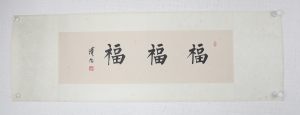 福福福